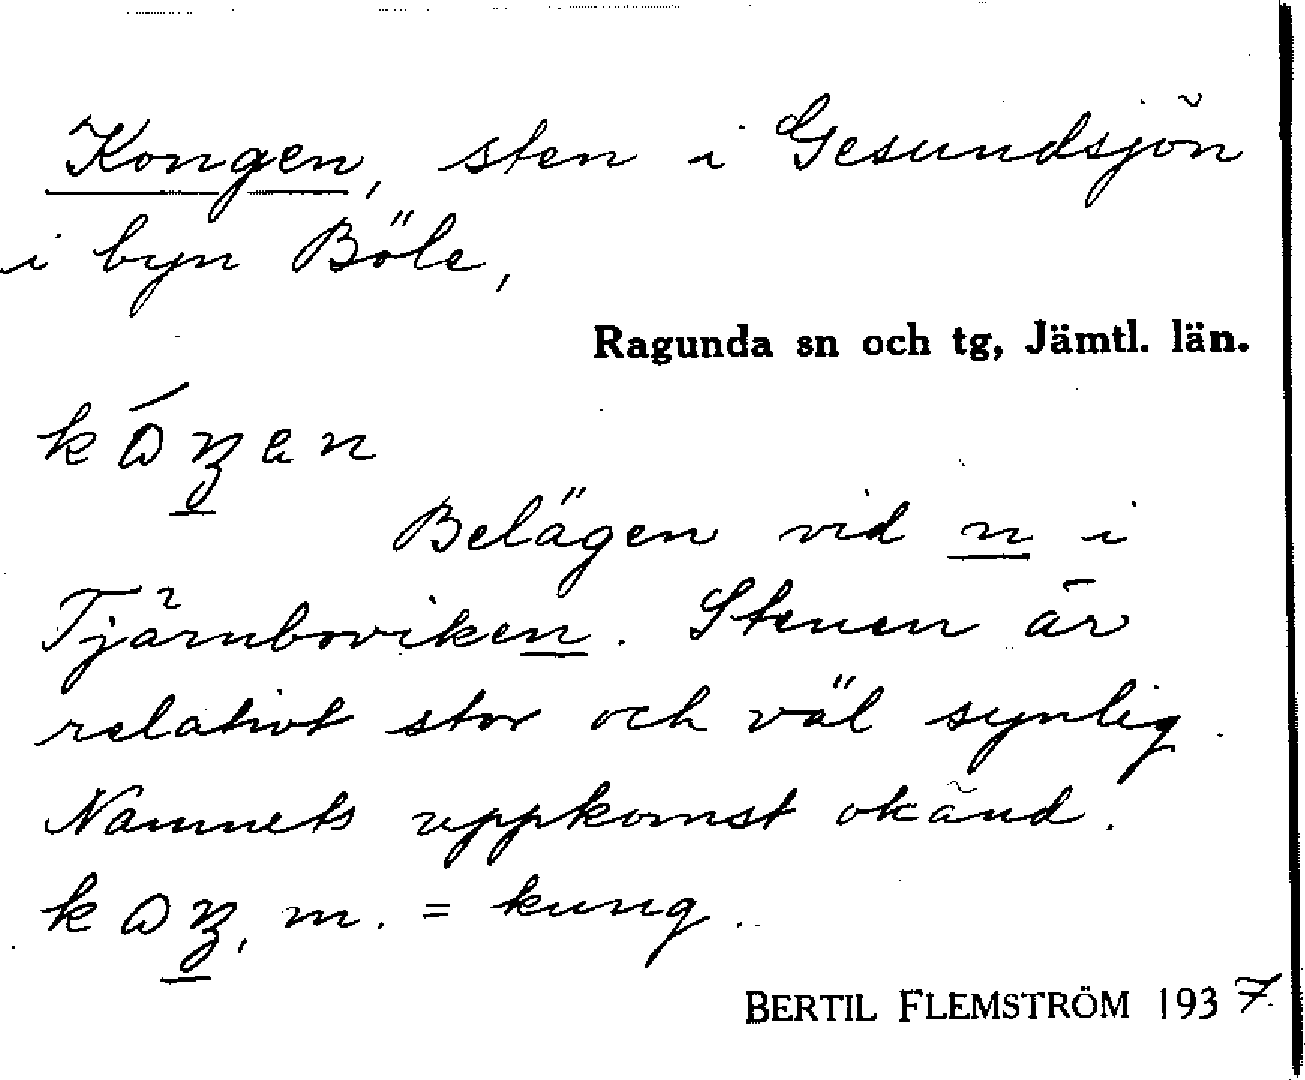 Kongen, sten i Gesundsjön
i byn Böle,
Ragunda sn och tg, Jämtl. län.
Belägen vid n i
Tjärnboviken. Stenen är
relativt stor och väl synlig.
Namnets uppkomst okänd.
m. = kung.
BERTIL FLEMSTRÖM 1937